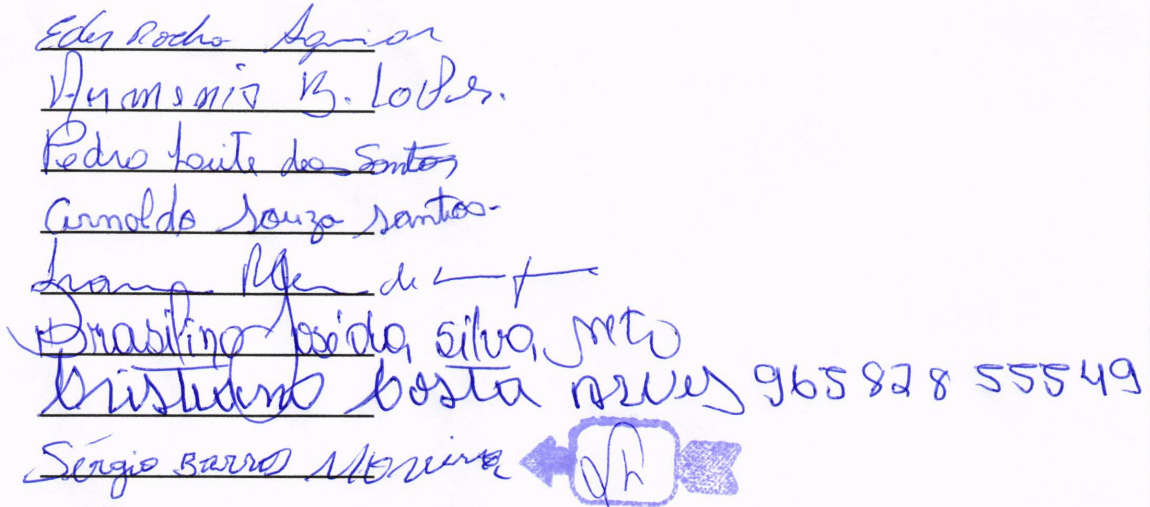 Eder Rocha Aguiar
B. Lopes.
Pedro Leite dos Santos
Arnoldo Souza Santos
de
Brasilino José da Silva Neto
Cristiano Costa 965828 55549
Sérgio Barros Moreira